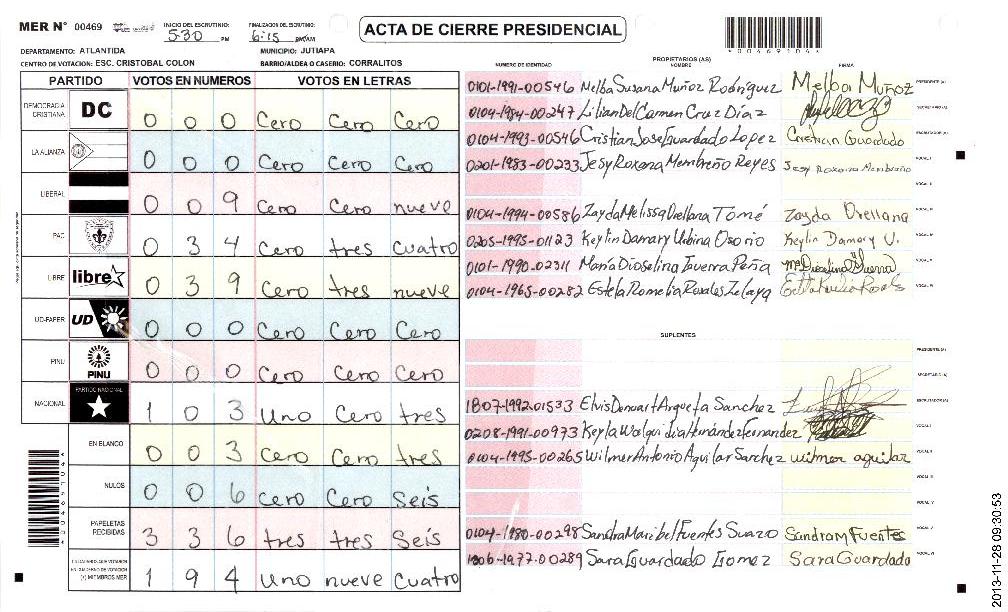 MER N° 00469
INICIO DEL ESCRUTINIO: 5:30 PM
FINALIZACION DEL ESCRUTINIO: 6:15 PM/AM
ACTA DE CIERRE PRESIDENCIAL
DEPARTAMENTO: ATLANTIDA
MUNICIPIO: JUTIAPA
CENTRO DE VOTACION: ESC. CRISTOBAL COLON
BARRIO/ALDEA O CASERIO: CORRALITOS
PARTIDO VOTOS EN NUMEROS VOTOS EN LETRAS
DEMOCRACIA CRISTIANA DC 0 0 0 Cero Cero Cero
LA ALIANZA 0 0 0 Cero Cero Cero
LIBERAL 0 0 9 Cero Cero nueve
PAC 0 3 4 Cero tres cuatro
LIBRE libre 0 3 9 Cero tres nueve
UD-FAPER UD 0 0 0 Cero Cero Cero
PINU PINU 0 0 0 Cero Cero Cero
NACIONAL PARTIDO NACIONAL 1 0 3 Uno Cero tres
EN BLANCO 0 0 3 Cero Cero tres
NULOS 0 0 6 Cero Cero Seis
PAPELETAS RECIBIDAS 3 3 6 tres tres Seis
(+) MIEMBROS MER 1 9 4 Uno nueve cuatro
PROPIETARIOS (AS)
NUMERO DE IDENTIDAD NOMBRE FIRMA
0101-1991-00546 Melba Susana Muñoz Rodríguez Melba Muñoz PRESIDENTE (A)
0104-1984-00247 Lilian Del Carmen Cruz Díaz SECRETARIO (A)
0104-1993-00546 Cristian Jose Guardado Lopez Cristian Guardado ESCRUTADOR (A)
0201-1983-00233 Jesy Roxana Membreño Reyes Jesy Roxana Membreño VOCAL I
VOCAL II
0104-1994-00586 Zayda Melissa Orellana Tomé Zayda Orellana VOCAL III
0205-1995-01123 Keylin Damary Urbina Osorio Keylin Damary U. VOCAL IV
0101-1990-02311 María Dioselina Guerra Peña Mª Dioselina Guerra VOCAL V
0104-1965-00282 Estela Romelia Rosales Zelaya VOCAL VI
SUPLENTES
PRESIDENTE (A)
SECRETARIO (A)
1807-1992-01533 Elvis Denuart Argueta Sanchez ESCRUTADOR (A)
0208-1991-00973 Keyla Walquidia Hernández Fernandez VOCAL I
0104-1995-00265 Wilmer Antonio Aguilar Sanchez wilmer aguilar VOCAL II
VOCAL III
VOCAL IV
0104-1980-00298 Sandra Maribel Fuentes Suazo Sandra M Fuentes VOCAL V
1806-1977-00289 Sara Guardado Gomez Sara Guardado VOCAL VI
2013-11-28 09:30:53